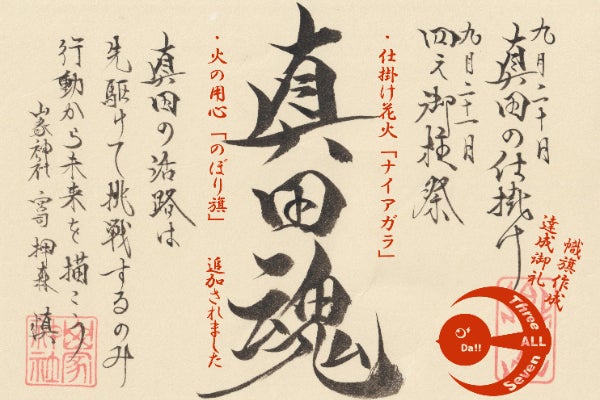 九月二十日
真田の仕掛け
御柱祭
幟旗作成
達成御礼
Three
ALL
Seven
Da!!
・仕掛け花火「ナイアガラ」
真田魂
・火の用心「のぼり旗」 追加されました
真田の活路は
先駆けて挑戦するのみ
行動から未来を描こう
山家神社 宮司 押森 慎
山家神社